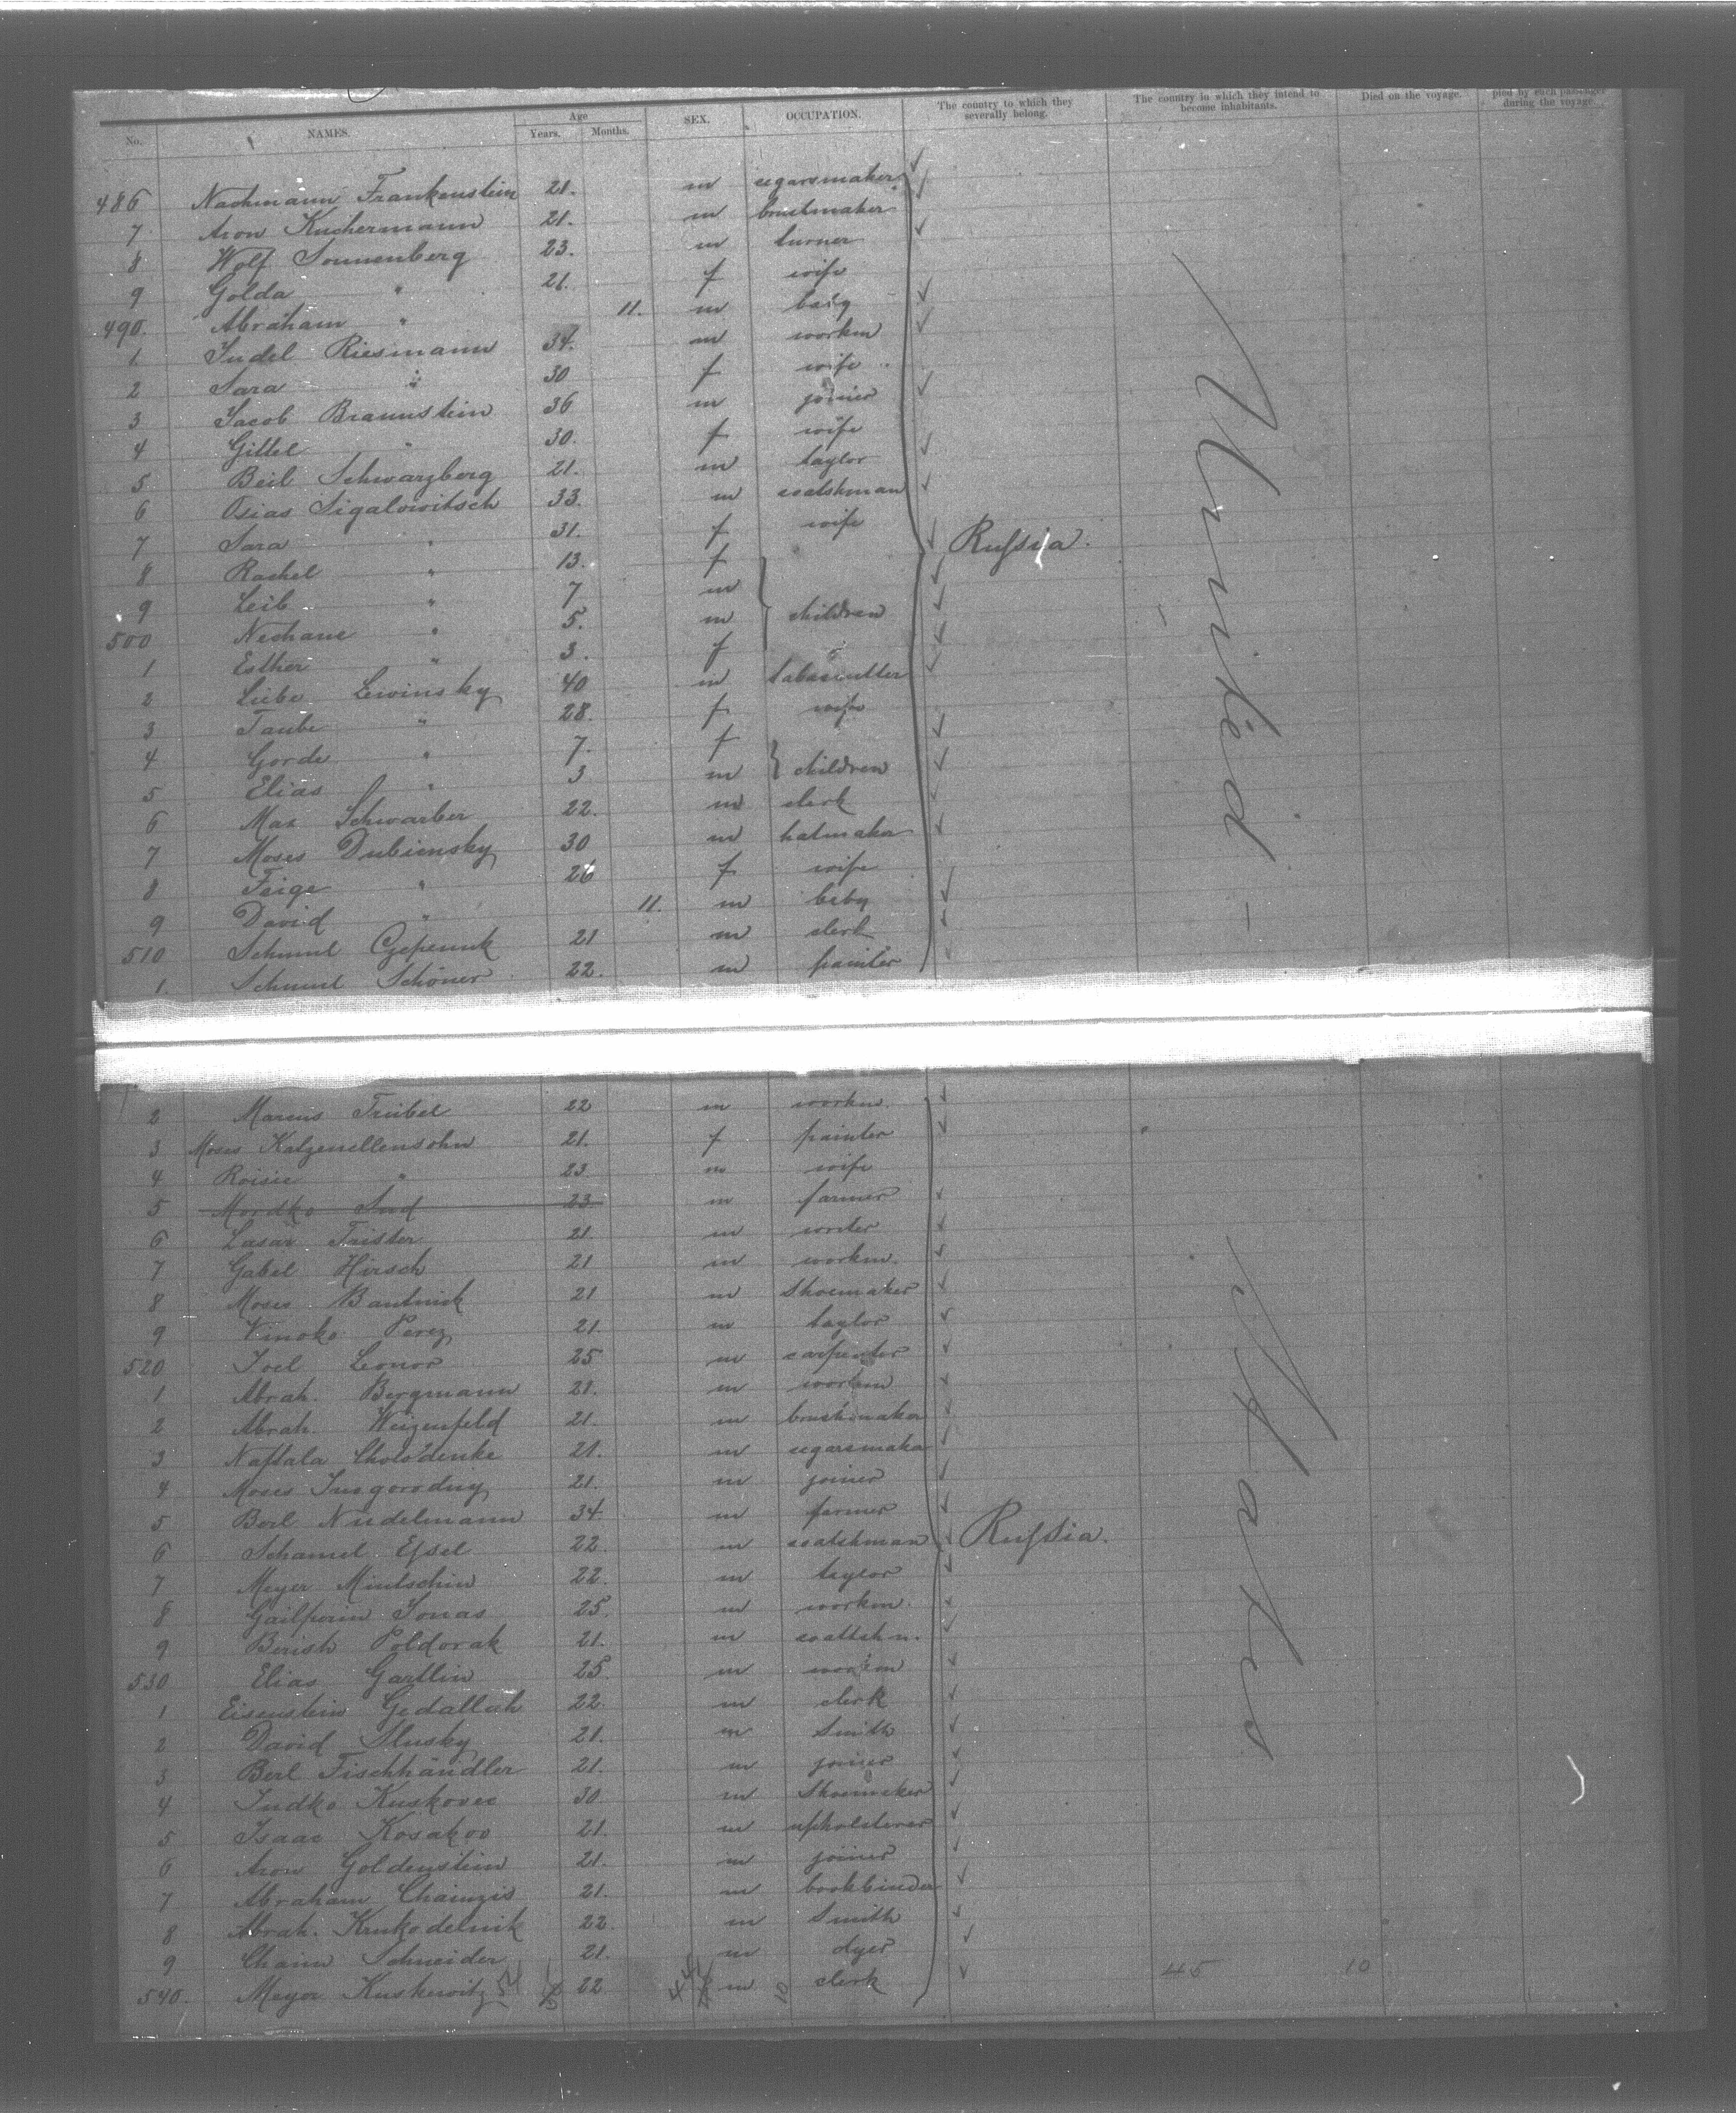 No. NAMES. Age Years. Months. SEX. OCCUPATION. The country to which they severally belong. The country in which they intend to become inhabitants. Died on the voyage. pied by each passenger during the voyage.
486 Nachmann Frankenstein 21. m cigarsmaker
7 Aron Kuchermann 21. m
8 Wolf Sonnenberg 23. m turner
9 Golda " 21. f wife
490. Abraham " 11. m baby
1. Judel Riesmann 34. m workm
2 Sara " 30 f wife
3 Jacob Braunstein 36 m joiner
4 Gittel " 30. f wife
5 Beil Schwarzberg 21. m taylor
6 Osias Sigalowitsch 33. m coatshman
7 Sara " 31. f wife
8 Rachel " 13. f
9 Leib " 7 m children
500 Nechane " 5. m
1 Esther " 3. f
2 Liebe Lewinsky 40 m
3 Taube " 28. f wife
4 Gorde " 7. f
5 Elias " 3 m children
6 Max Schwarber 22. m clerk
7 Moses Dubiensky 30 m hatmaker
8 Feige " 26 f wife
9 David " 11. m beby
510 Schmul 21 m clerk
1. Schmul Schöner 22. m painter
Russia.
United -
2 Marcus Trübel 22 m workm.
3 Moses Katzenellensohn 21. f painter
4 Roisie " 23 m wife
5 Mordko Jud 23 m farmer
6 Lasar Trister 21 m writer
7 Gabel Hirsch 21 m workm.
8 Moses Bautnick 21 m Shoemaker
9 Vinoko Perez 21. m taylor
520 Joel Leonor 25 m carpenter
1 Abrah. Bergmann 21. m workm
2 Abrah. Weizenfeld 21. m brushmaker
3 Naftala Cholodenke 21. m cigarsmaker
4 Moses 21. m joiner
5 Berl Nudelmann 34. m farmer
6 Schamel Essel 22. m coatshman
7 Meyer Mintschin 22. m taylor
8 Gailperin Jonas 25. m workm.
9 Berish Poldorak 21. m
530 Elias Gartlin 25. m workm
1 Eisenstein Gedallah 22. m clerk
2 David Slusky 21. m Smith
3 Berl Fischhändler 21. m joiner
4 Judko Kuskovec 30. m Shoemaker
5 Isaac Kosakoo 21. m upholsterer
6 Aron Goldenstein 21. m joiner
7 Abraham Chaimzis 21. m bookbinder
8 Abrah. Krukodelnik 22. m Smith
9 Chaim Schneider 21. m dyer
540. Meyer Kuskewitz 54 22 44 m 10 clerk 45 10
Russia.
States